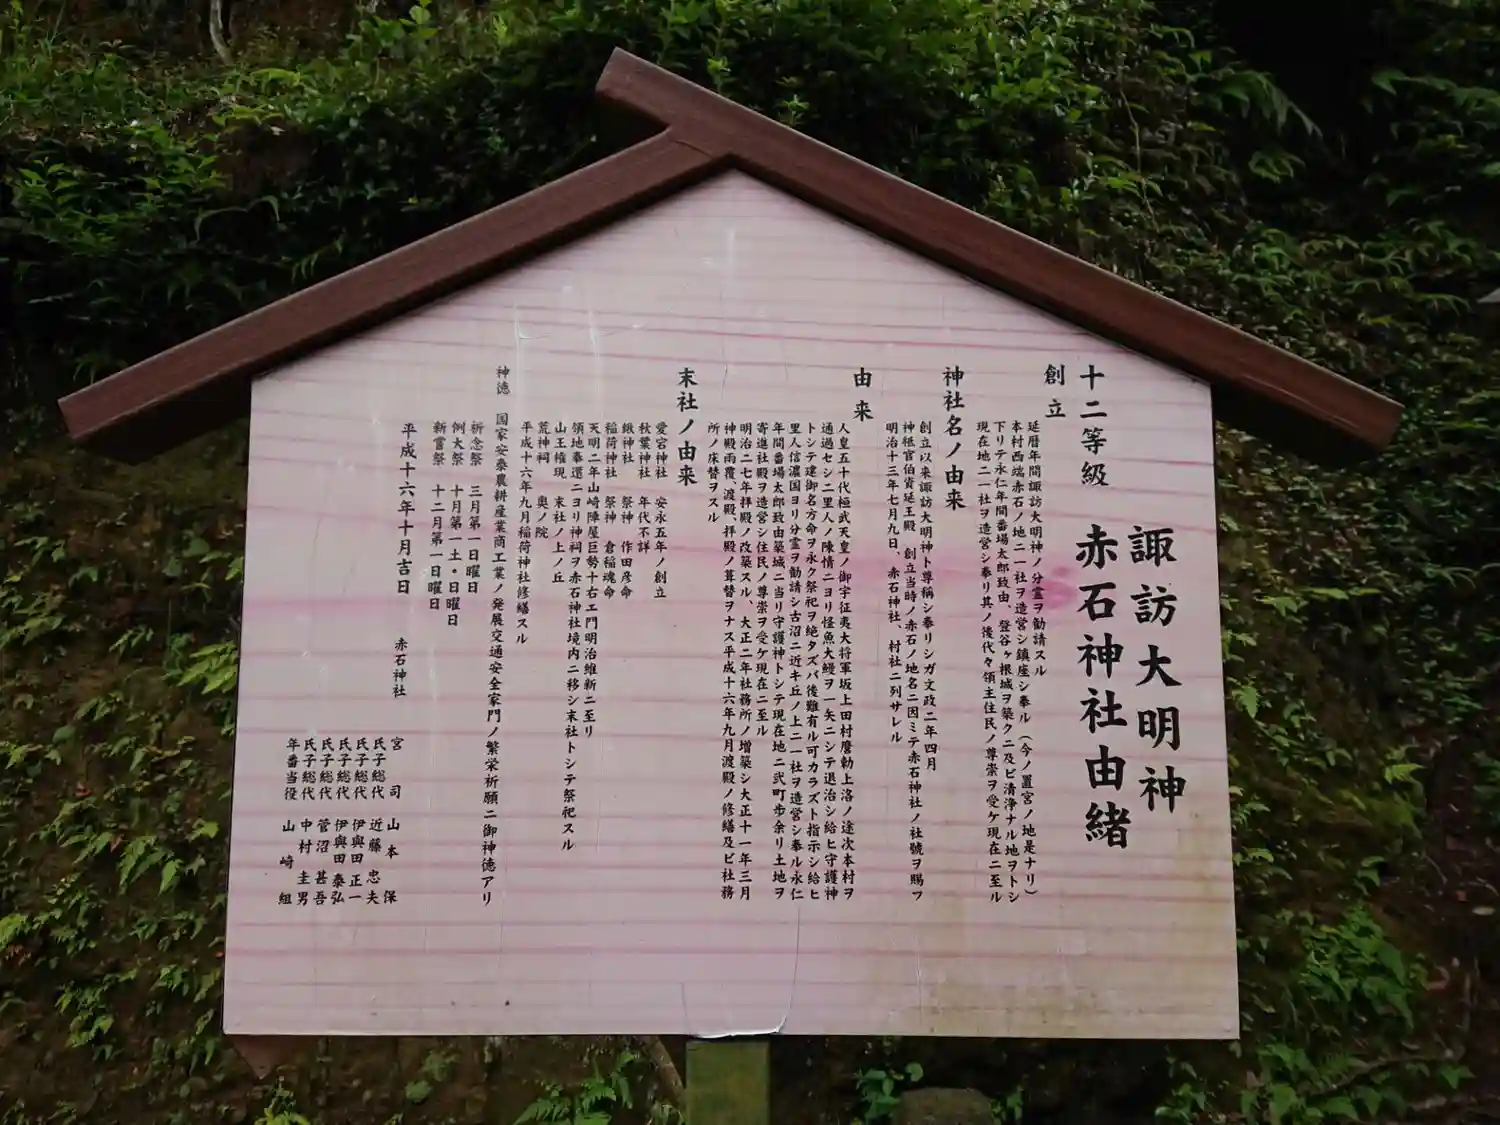 諏訪大明神
十二等級 赤石神社由緒
創立
延暦年間諏訪大明神ノ分霊ヲ勧請スル
本村西端赤石ノ地ニ一社ヲ造営シ鎮座シ奉ル(今ノ置宮ノ地是ナリ)
下リテ永仁年間番場太郎致由、登谷ヶ根城ヲ築クニ及ビ清浄ナル地ヲトシ
現在地ニ一社ヲ造営シ奉リ其ノ後代々領主住民ノ尊崇ヲ受ケ現在ニ至ル
神社名ノ由来
創立以来諏訪大明神ト尊称シ奉リシガ文政二年四月
神祗官伯資延王殿 創立当時ノ赤石ノ地名ニ因ミテ赤石神社ノ社號ヲ賜フ
明治十三年七月九日、赤石神社、村社ニ列サレル
由来
人皇五十代桓武天皇ノ御宇征夷大将軍坂上田村麿勅上洛ノ途次本村ヲ
通過セシニ里人ノ陳情ニヨリ怪魚大鰻ヲ一矢ニシテ退治シ給ヒ守護神
トシテ建御名方命ヲ永ク祭祀ヲ絶タズバ後難有ル可カラズト指示シ給ヒ
里人信濃国ヨリ分霊ヲ勧請シ古沼ニ近キ丘ノ上ニ一社ヲ造営シ奉ル永仁
年間番場太郎致由築城ニ当リ守護神トシテ現在地ニ弐町歩余リ土地ヲ
寄進社殿ヲ造営シ住民ノ尊崇ヲ受ケ現在ニ至ル
明治二七年拝殿ノ改築スル、大正二年社務所ノ増築シ大正十一年三月
神殿雨覆、渡殿、拝殿ノ葺替ヲナス平成十六年九月渡殿ノ修繕及ビ社務
所ノ床替ヲスル
末社ノ由来
愛宮神社 安永五年ノ創立
秋葉神社 年代不詳
鍬神社 祭神 作田彦命
稲荷神社 祭神 倉稲魂命
天明二年山崎陣屋巨勢十右エ門明治維新ニ至リ
領地奉還ニヨリ神祠ヲ赤石神社境内ニ移シ末社トシテ祭祀スル
山王権現 末社ノ上ノ丘
荒神祠 奥ノ院
平成十六年九月稲荷神社修繕スル
神徳 国家安泰農耕産業商工業ノ発展交通安全家門ノ繁栄祈願ニ御神徳アリ
祈念祭 三月第一日曜日
例大祭 十月第一土・日曜日
新嘗祭 十二月第一日曜日
平成十六年十月吉日 赤石神社
宮司 山本 保
氏子総代 近藤忠夫
氏子総代 伊與田正一
氏子総代 伊與田泰弘
氏子総代 菅沼甚吾
氏子総代 中村圭男
年番当役 山崎組